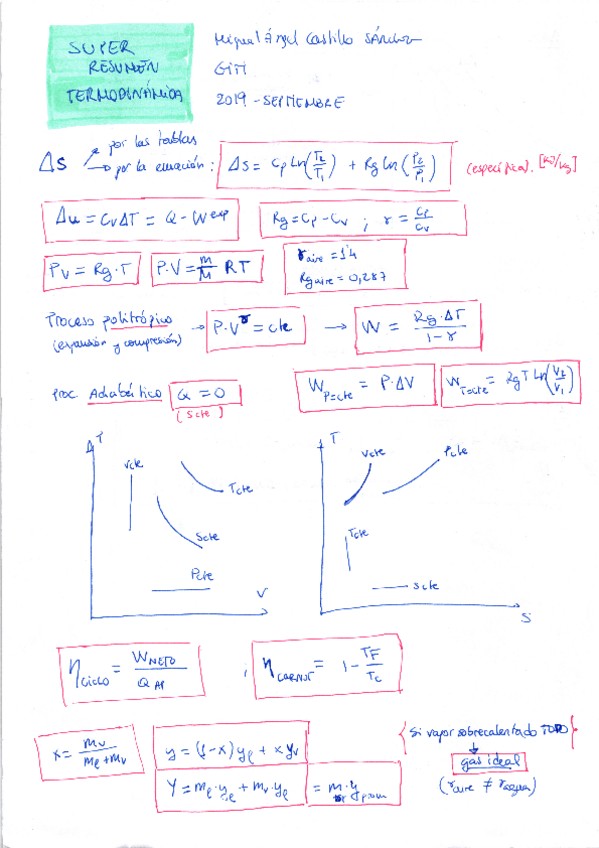 SUPER
RESUMEN
TERMODINÁMICA
Miguel Ángel Castillo Sánchez
GITI
2019 - SEPTIEMBRE
ΔS
por las tablas
por la ecuación: ΔS = Cp Ln(T2/T1) + Rg Ln(P2/P1) (específica). [KJ/Kg]
Δu = Cv ΔT = Q - W exp
Rg = Cp - Cv ; γ = Cp/Cv
Pv = Rg·T
P·V = m/M RT
γaire = 1'4
Rg aire = 0,287
Proceso politrópico → P·V^γ = cte → W = Rg·ΔT/(1-γ)
(expansión y compresión)
Proc. Adiabático Q = 0
(Scte)
W P=cte = P·ΔV
W T=cte = RgT Ln(V2/V1)
T
Vcte
Tcte
Scte
Pcte
V
T
Vcte
Pcte
Tcte
Scte
S
ηciclo = WNETO/QAP ; ηCARNOT = 1 - TF/TC
x = mv/(mℓ+mv)
y = (1-x)yℓ + x yv
Y = mℓ·yℓ + mv·yℓ = m·y
Si vapor sobrecalentado TODO
gas ideal
(γaire ≠ γagua)